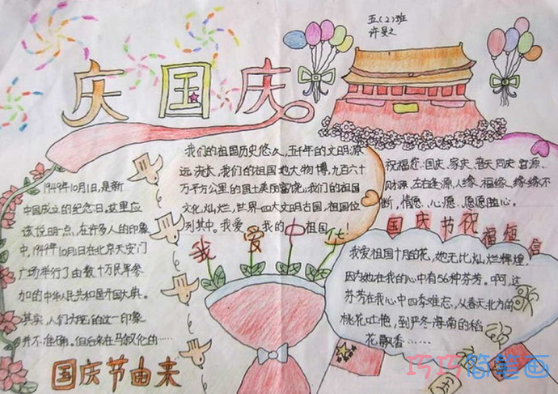 五(2)班
庆国庆
我们的祖国历史悠久,五千年的文明源
远流长,我们的祖国地大物博,九百六十
万平方公里的国土美丽富饶,我们的祖国
文化灿烂,世界四大文明古国,祖国位
列其中。我爱我的中国
我爱中
祝福您:国庆、家庆、普天同庆,官源、
财源,左右逢源。人缘、福缘、缘缘不
断,情愿、心愿、愿愿随心。
国庆节祝福短信
1949年10月1日,是新
中国成立的纪念日。这里应
该说明一点,在许多人的印象
中,1949年10月1日在北京天安门
广场举行了由数十万民军参
加的中华人民共和国开国大典。
其实,人们头脑中的这一印象
并不准确,但后来在马叙伦的……
国庆节由来
我爱祖国十月的花,她无比灿烂辉煌。
因为她在我的心中有56种芬芳。啊,这
芬芳在我心中四季难忘,从春天北方的
桃花吐艳,到严冬海南的稻
花飘香……
巧巧简笔画